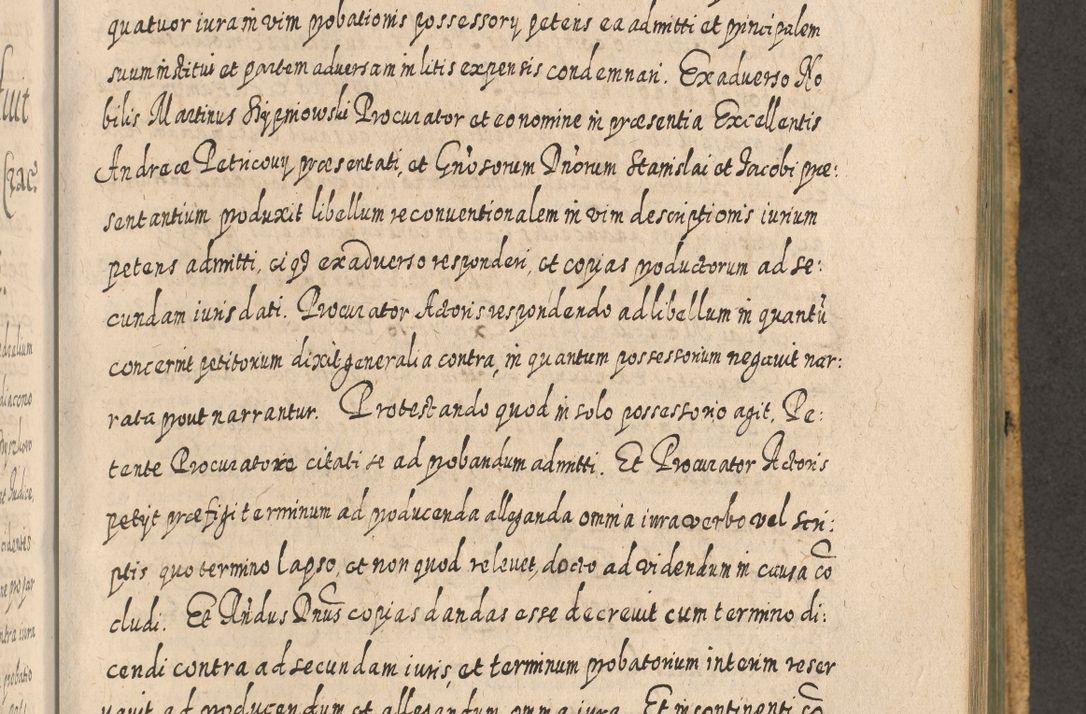 quatuor iura in vim probationis possessory petens ea admitti et principalem
suum institui et partem adversam in litis expensis condemnari. Ex adverso No
bilis Martinus Procurator et eo nomine in præsentia Excellentis
Andreæ Petricovy præsentati, et Gnosorum Dnorum Stanislai et Jacobi præ:
sentantium produxit libellum reconventionalem in vim descriptionis iurium
petens admitti, eiq3 ex adverso responderi, et copias productorum ad se:
cundam iuris dati. Procurator Actoris respondendo ad libellum in quantũ
concernit petitorium dixit generalia contra, in quantum possessorium negavit nar:
rata prout narrantur. Protestando quod in solo possessorio agit. Pe:
tente Procuratore citati se ad probandum admitti. Et Procurator Actoris
petijt præfigi terminum ad producenda alleganda omnia iura verbo vel scri:
ptis quo termino lapso, et non quod relevet, docto ad videndum in causa cõ
cludi. Et Rndus Dnus copias dandas esse decrevit cum termino di:
cendi contra ad secundam iuris, et terminum probatorium interim reser
vavit ad producendum et allegandum omnia iura. Et in continenti cõ